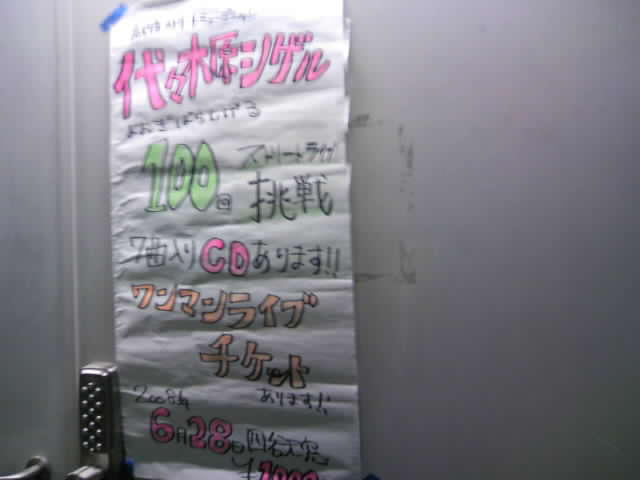 代々木原シゲル
よよぎばらしげる
100回
ストリートライブ
挑戦
7曲入りCDあります!!
ワンマンライブ
チケット
あります!!
2008年
6月28日四谷天窓